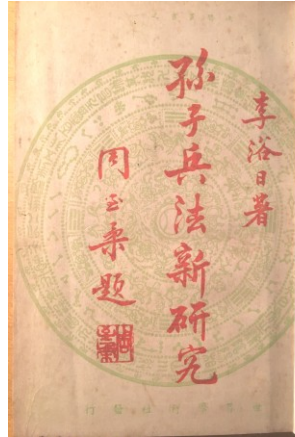 李浴日著
孫子兵法新研究
周至柔題